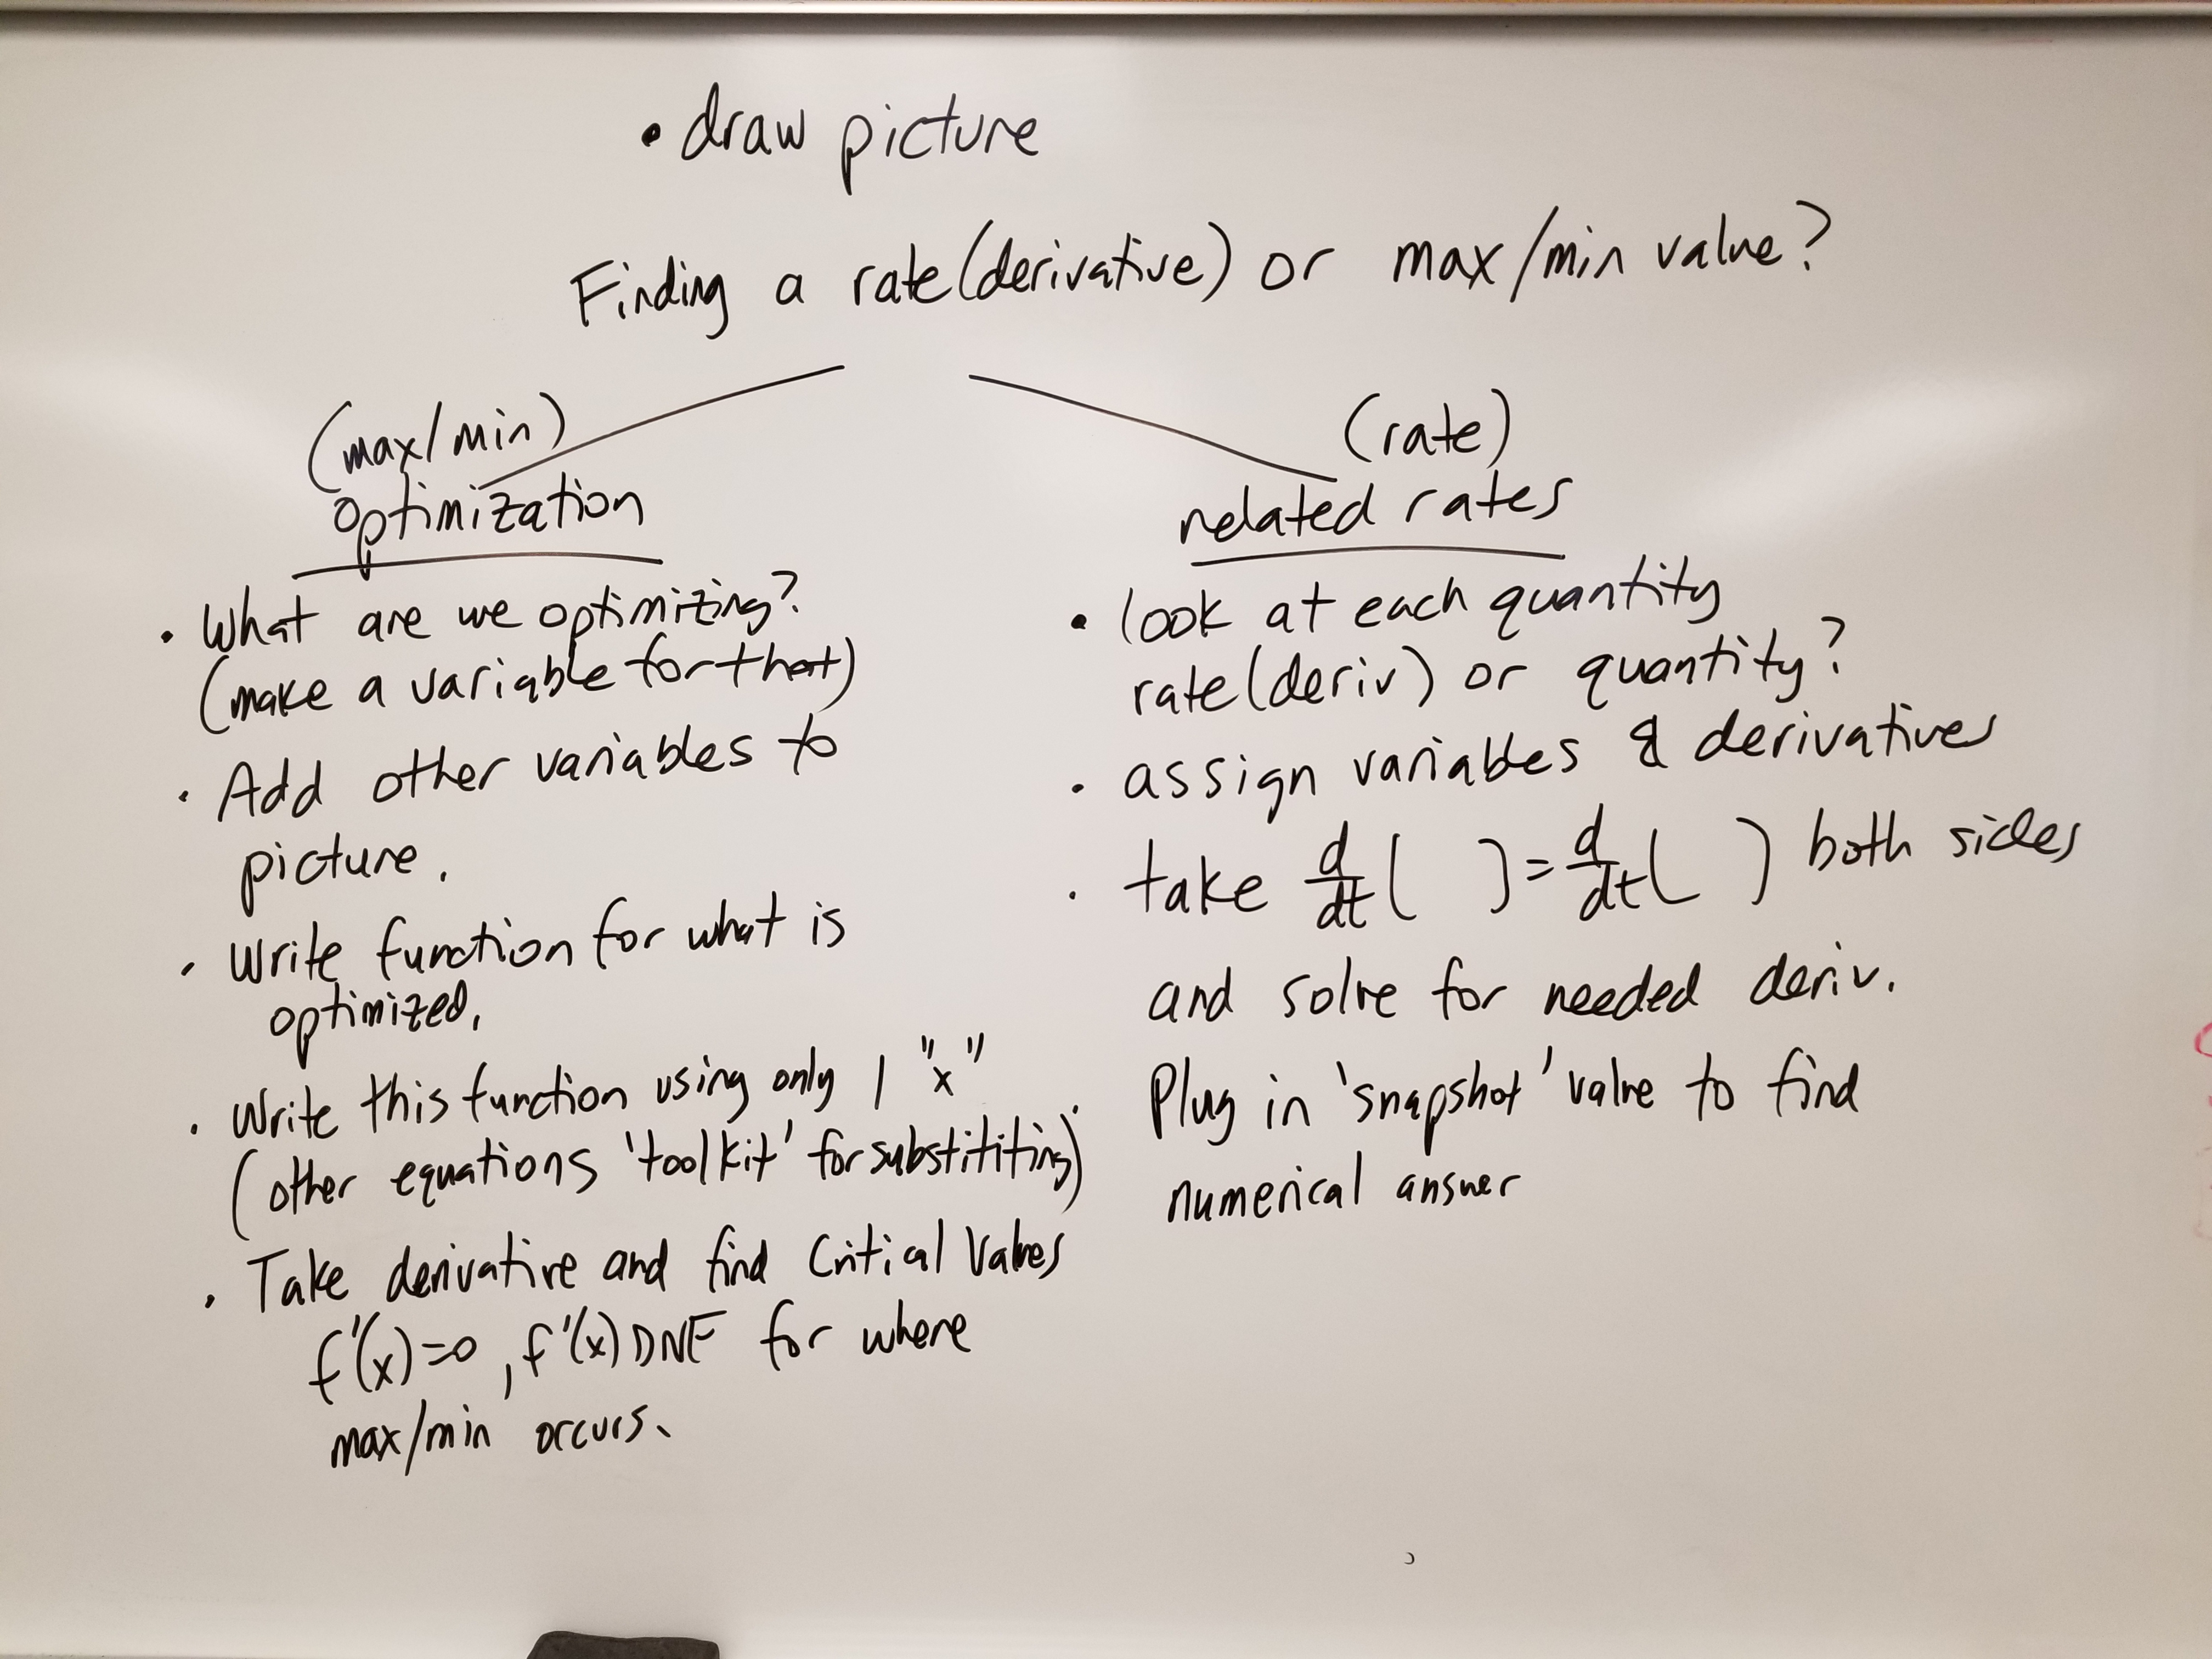 • draw picture
Finding a rate (derivative) or max/min value?
(max/min)
optimization
• What are we optimizing?
(make a variable for that)
• Add other variables to
picture.
• Write function for what is
optimized.
• Write this function using only 1 "x"
(other equations 'toolkit' for substititing)
• Take derivative and find Critical Values
f'(x)=0, f'(x) DNE for where
max/min occurs.
(rate)
related rates
• look at each quantity
rate (deriv) or quantity?
• assign variables & derivatives
• take d/dt ( ) = d/dt ( ) both sides
and solve for needed deriv.
Plug in 'snapshot' value to find
numerical answer